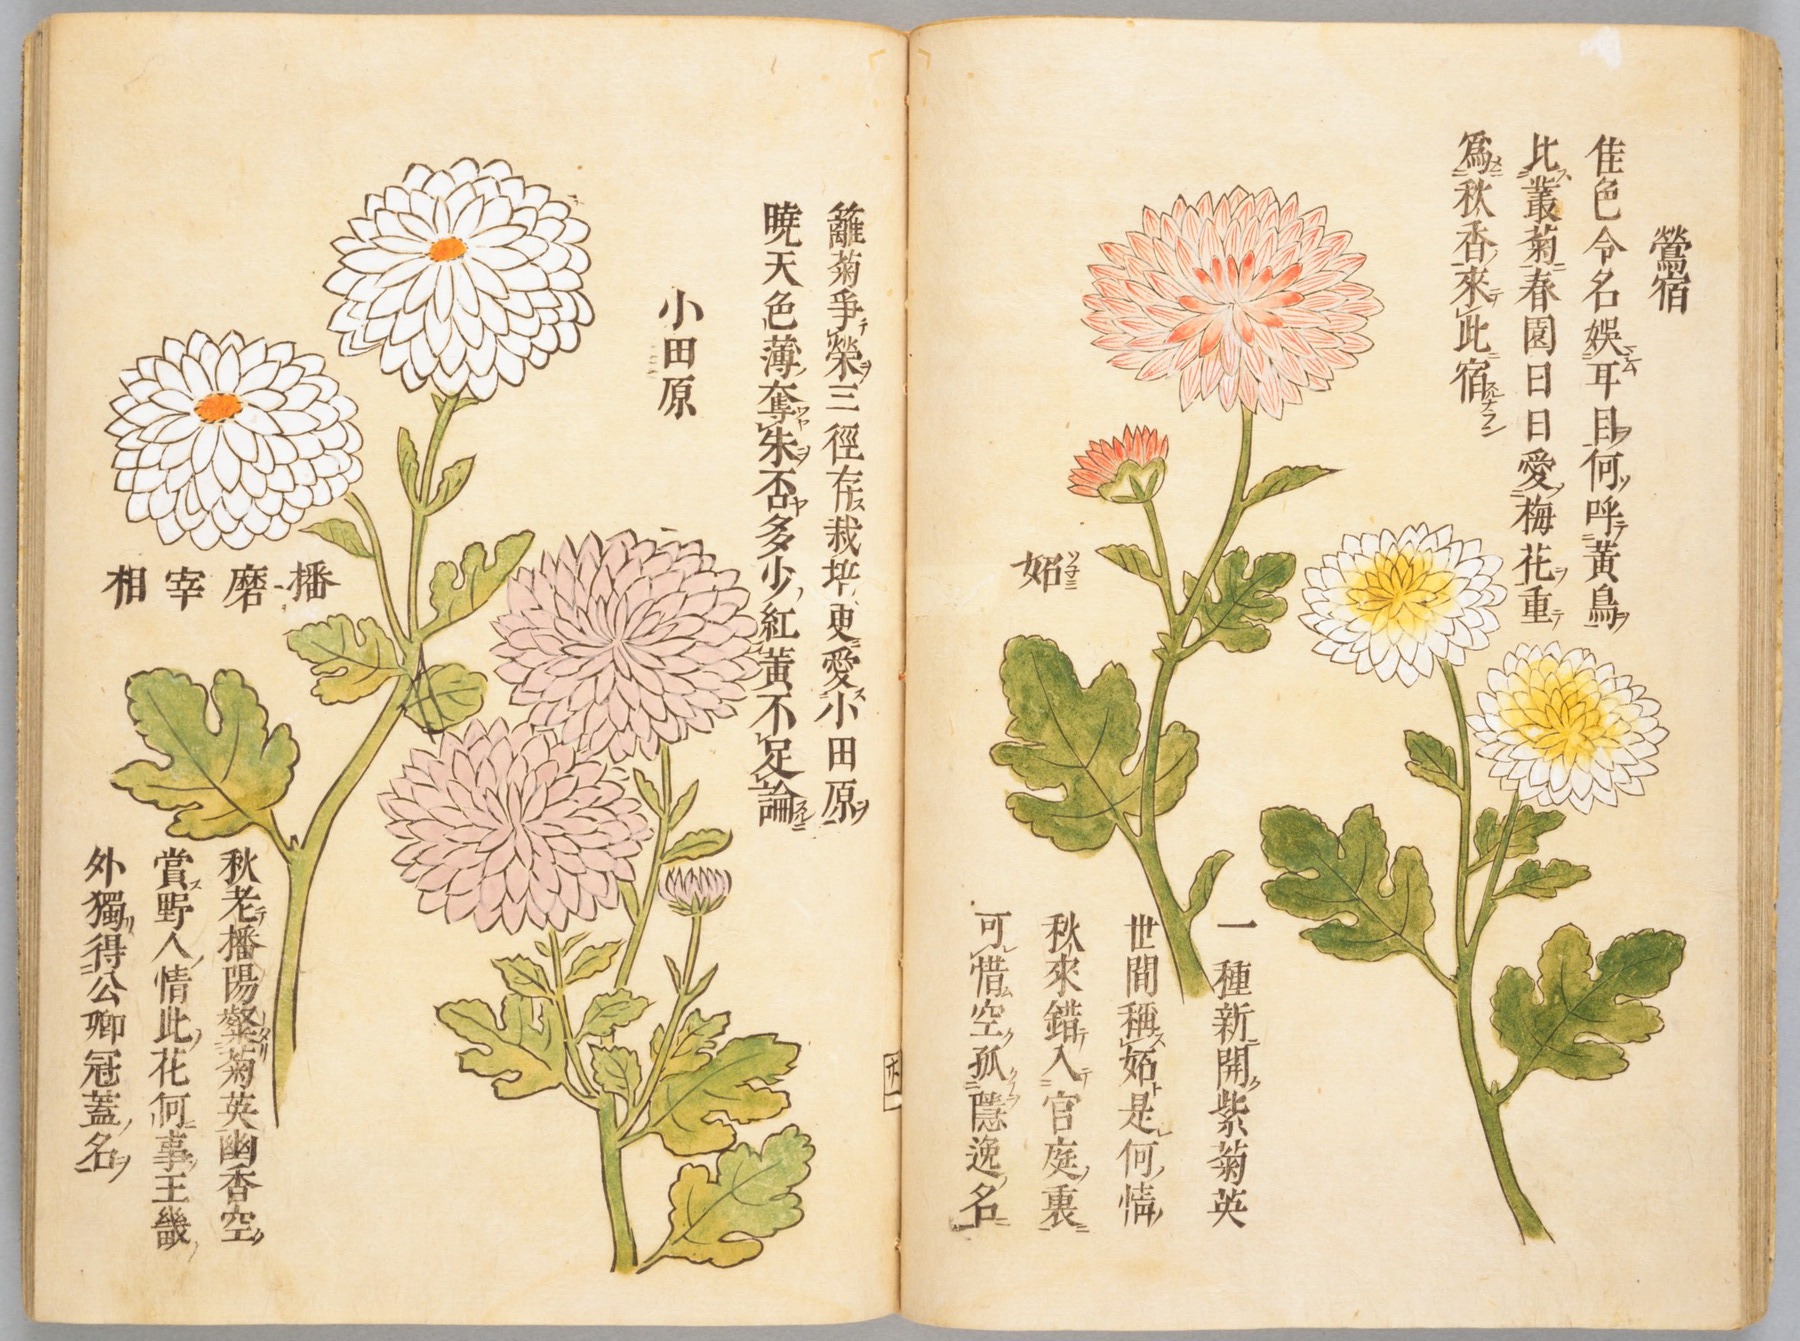 鶯宿
佳色令名娯耳目何呼黃鳥
比叢菊春園日日愛梅花重
爲秋香來此宿
妬
一種新開紫菊英
世間稱妬是何情
秋來錯入官庭裏
可惜空孤隱逸名
籬菊爭榮三徑存栽培更愛小田原
曉天色薄奪朱否多少紅黃不足論
小田原
播磨宰相
秋老播陽粲菊英幽香空
賞野人情此花何事王畿
外獨得公卿冠蓋名